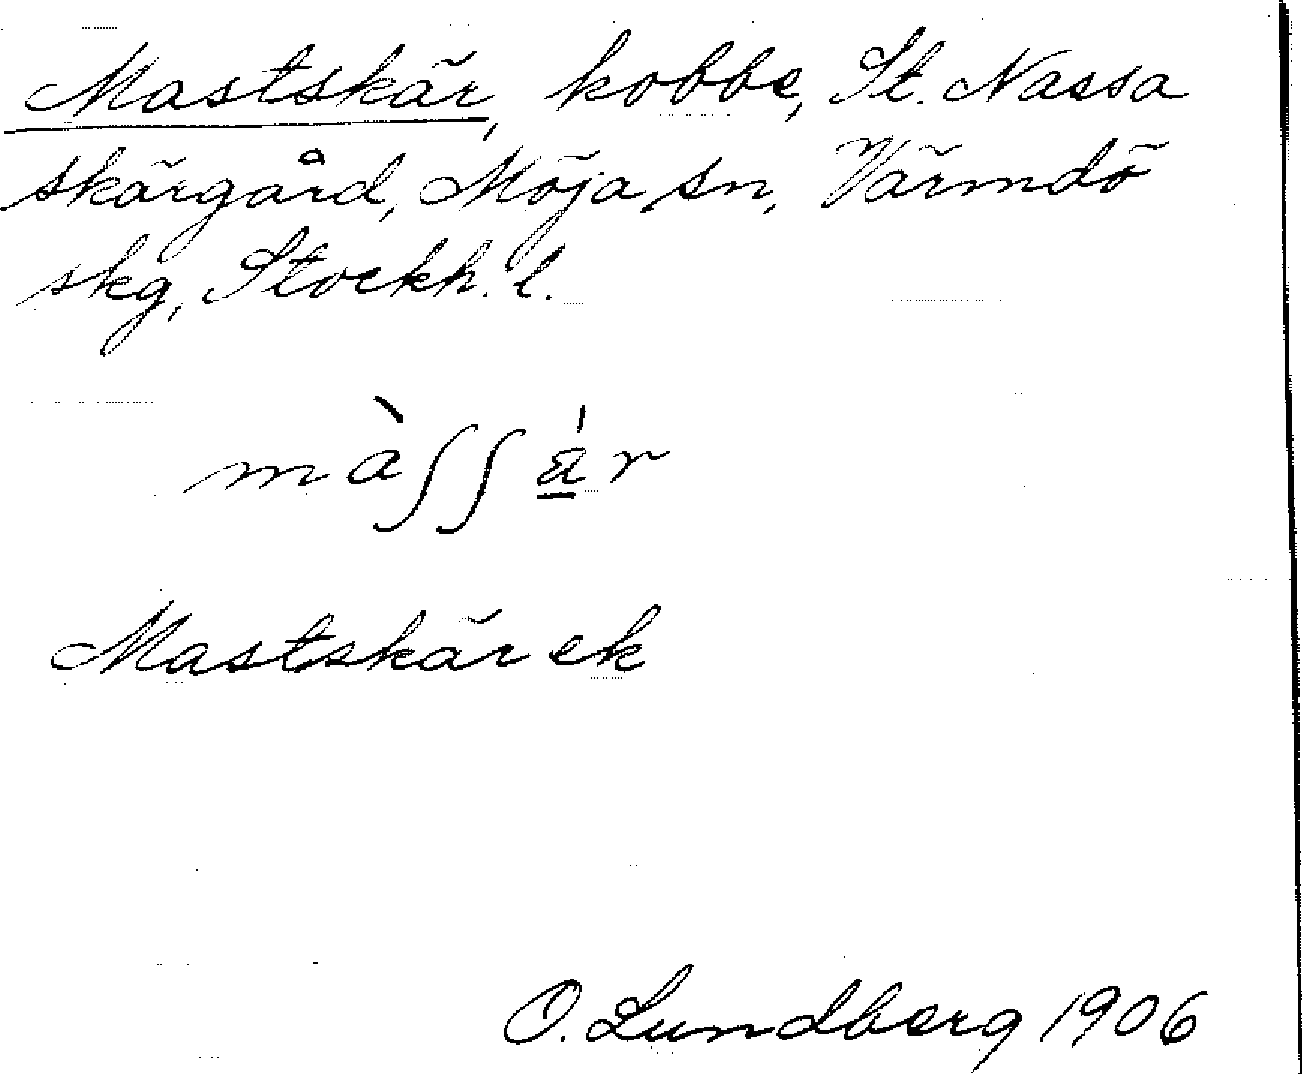 Mastskär, kobbe, St. Nassa
skärgård, Möja sn, Värmdö
skg, Stockh. l.
màʃʃä́r
Mastskär ek
O. Lundberg 1906